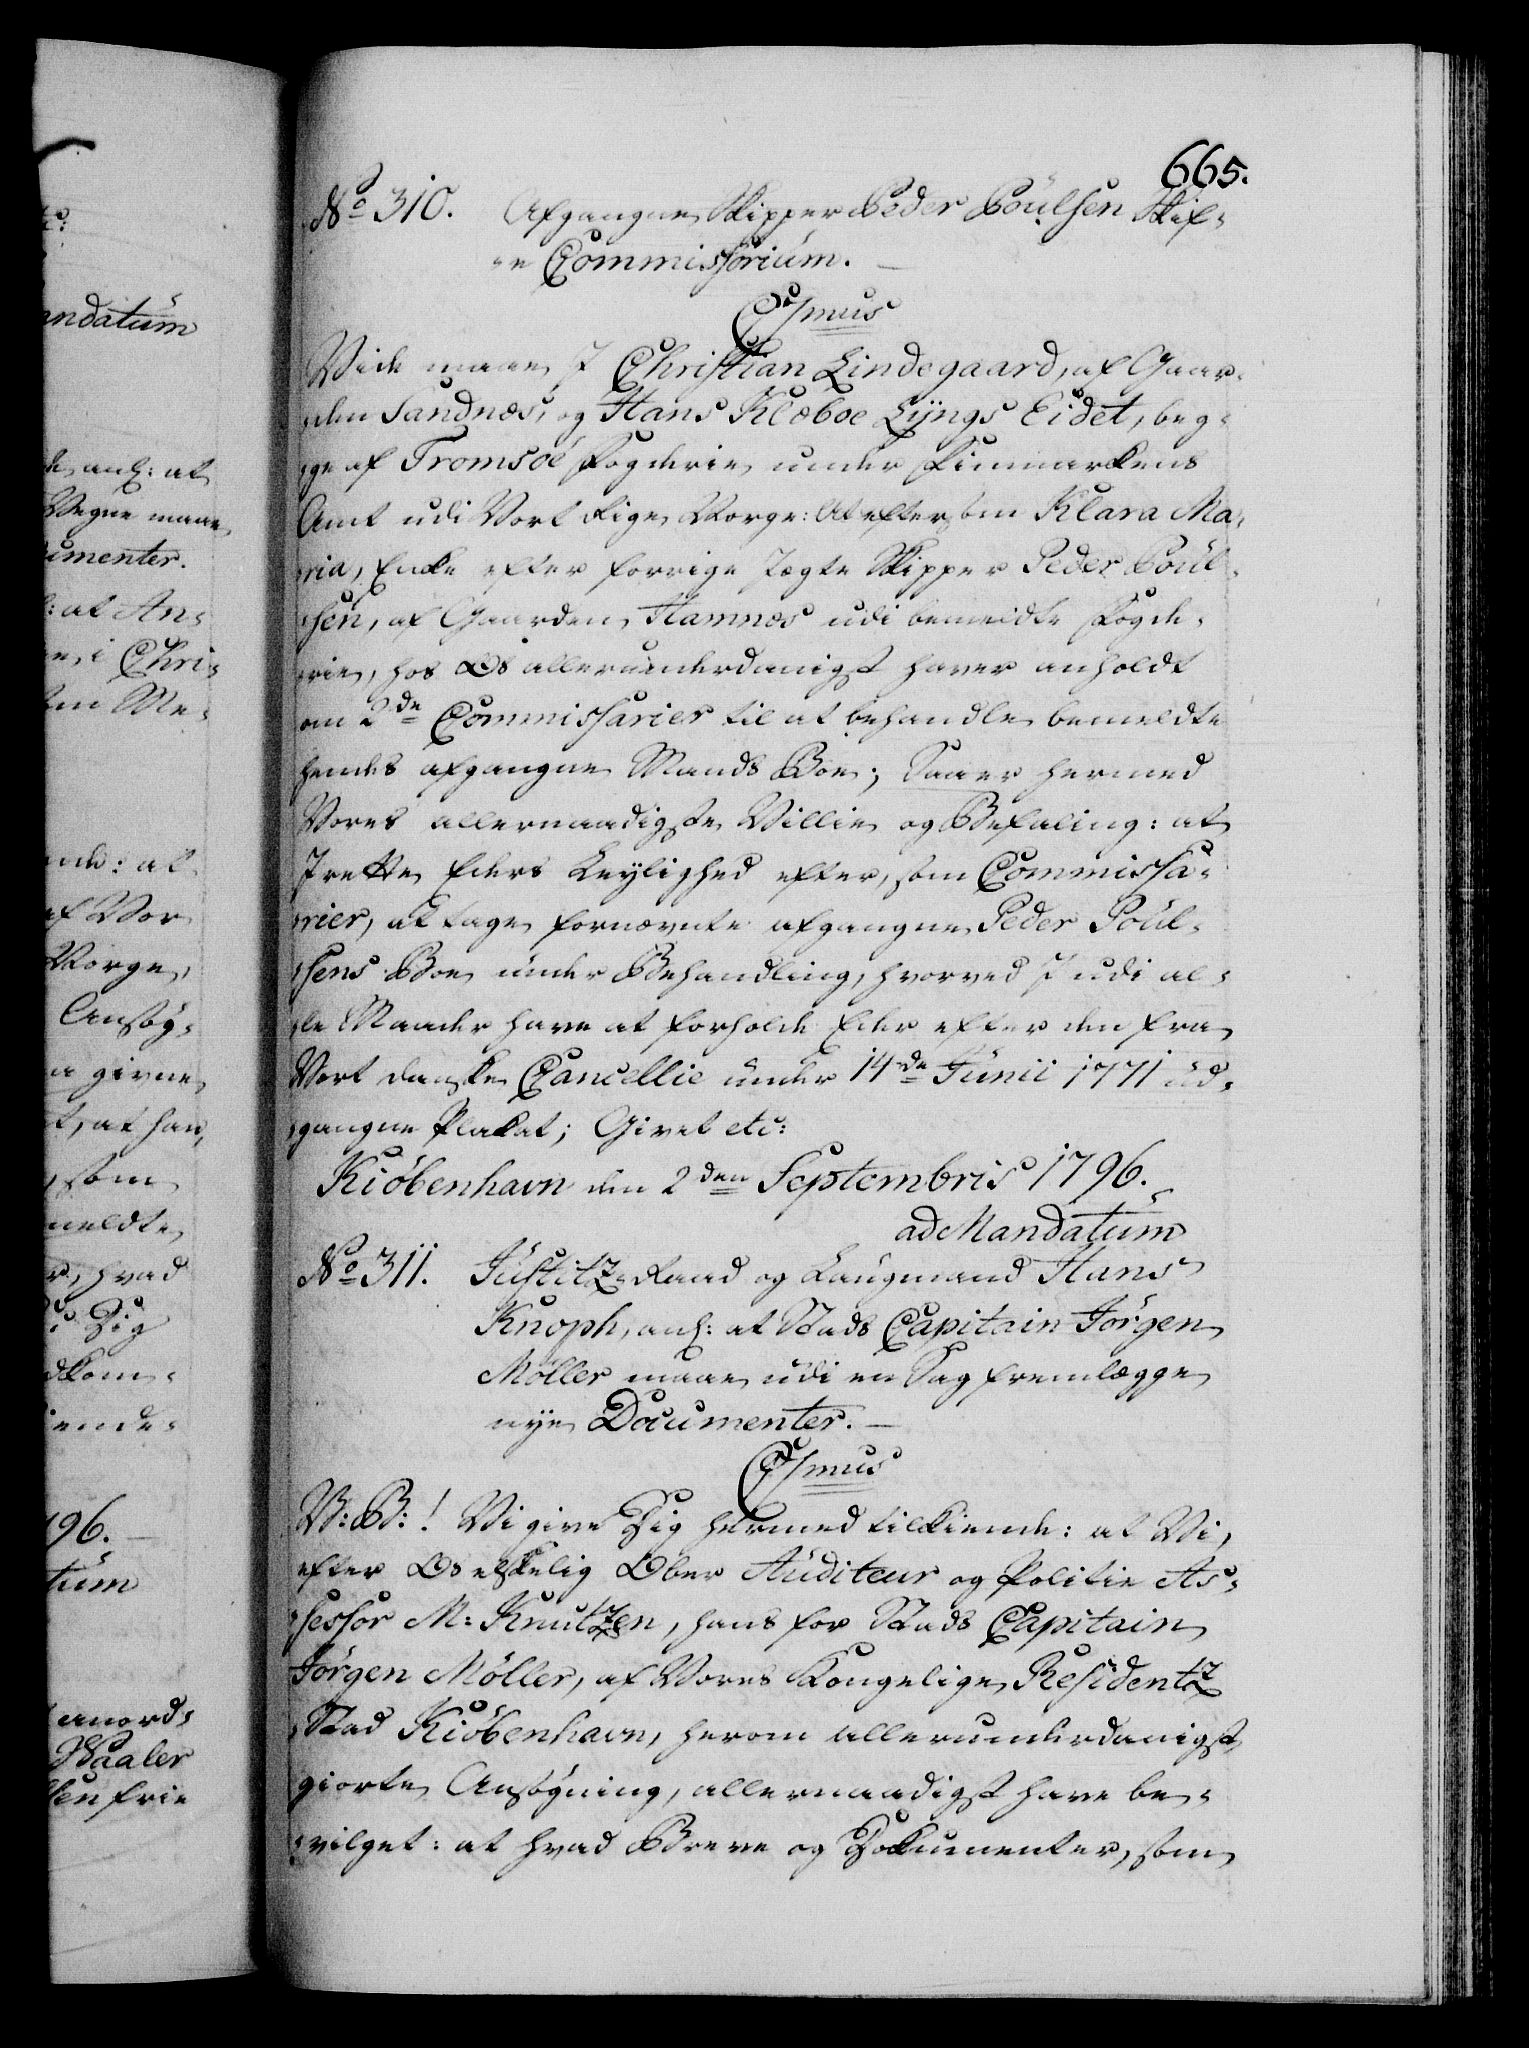 665.
No 310. Afgangne Skipper Peder Poulsen Skif-
-te Commissorium.
C7mus
Vide maae I Christian Lindegaard, af Gaar-
-den Sandnæs, og Hans Klæboe Lyngs Eidet, beg-
-ge af Tromsøe Fogderie under Finmarkens
Amt udi Vort Rige Norge: At eftersom Klara Ma-
-ria, Enke efter forrige Jægte Skipper Peder Poul-
-sen, af Gaarden Hamnæs udi bemeldte Fogde-
-rie, hos Os allerunderdanigst haver anholdt
om 2de Commissarier til at behandle bemeldte
hendes afgangne Mands Boe; Saa er hermed
Vores allernaadigste Villie og Befaling: at
I rette Eders Leylighed efter, som Commissa-
-rier, at tage fornævnte afgangne Peder Poul-
-sens Boe under Behandling, hvorved I udi al-
-le Maader have at forholde Eder efter den fra
Vort danske Cancellie under 14de Junii 1771 ud-
-gangne Plakat; Givet etc:
Kiøbenhavn den 2den Septembris 1796.
ad Mandatum
No 311. Justitz-Raad og Laugmand Hans
Knoph, anl: at Stads Capitain Jørgen
Møller maae udi en Sag fremlægge
nye Documenter.
C7mus
V: G: ! Vi give Dig hermed tilkiende: at Vi,
efter Os elskelig Ober Auditeur og Politie As-
-sessor M: Knutzen, hans for Stads Capitain
Jørgen Møller, af Vores Kongelige Residentz
-Stad Kiøbenhavn, herom allerunderdanigst
giorte Ansøgning, allernaadigst have be-
-vilget: at hvad Breve og Dokumenter, som